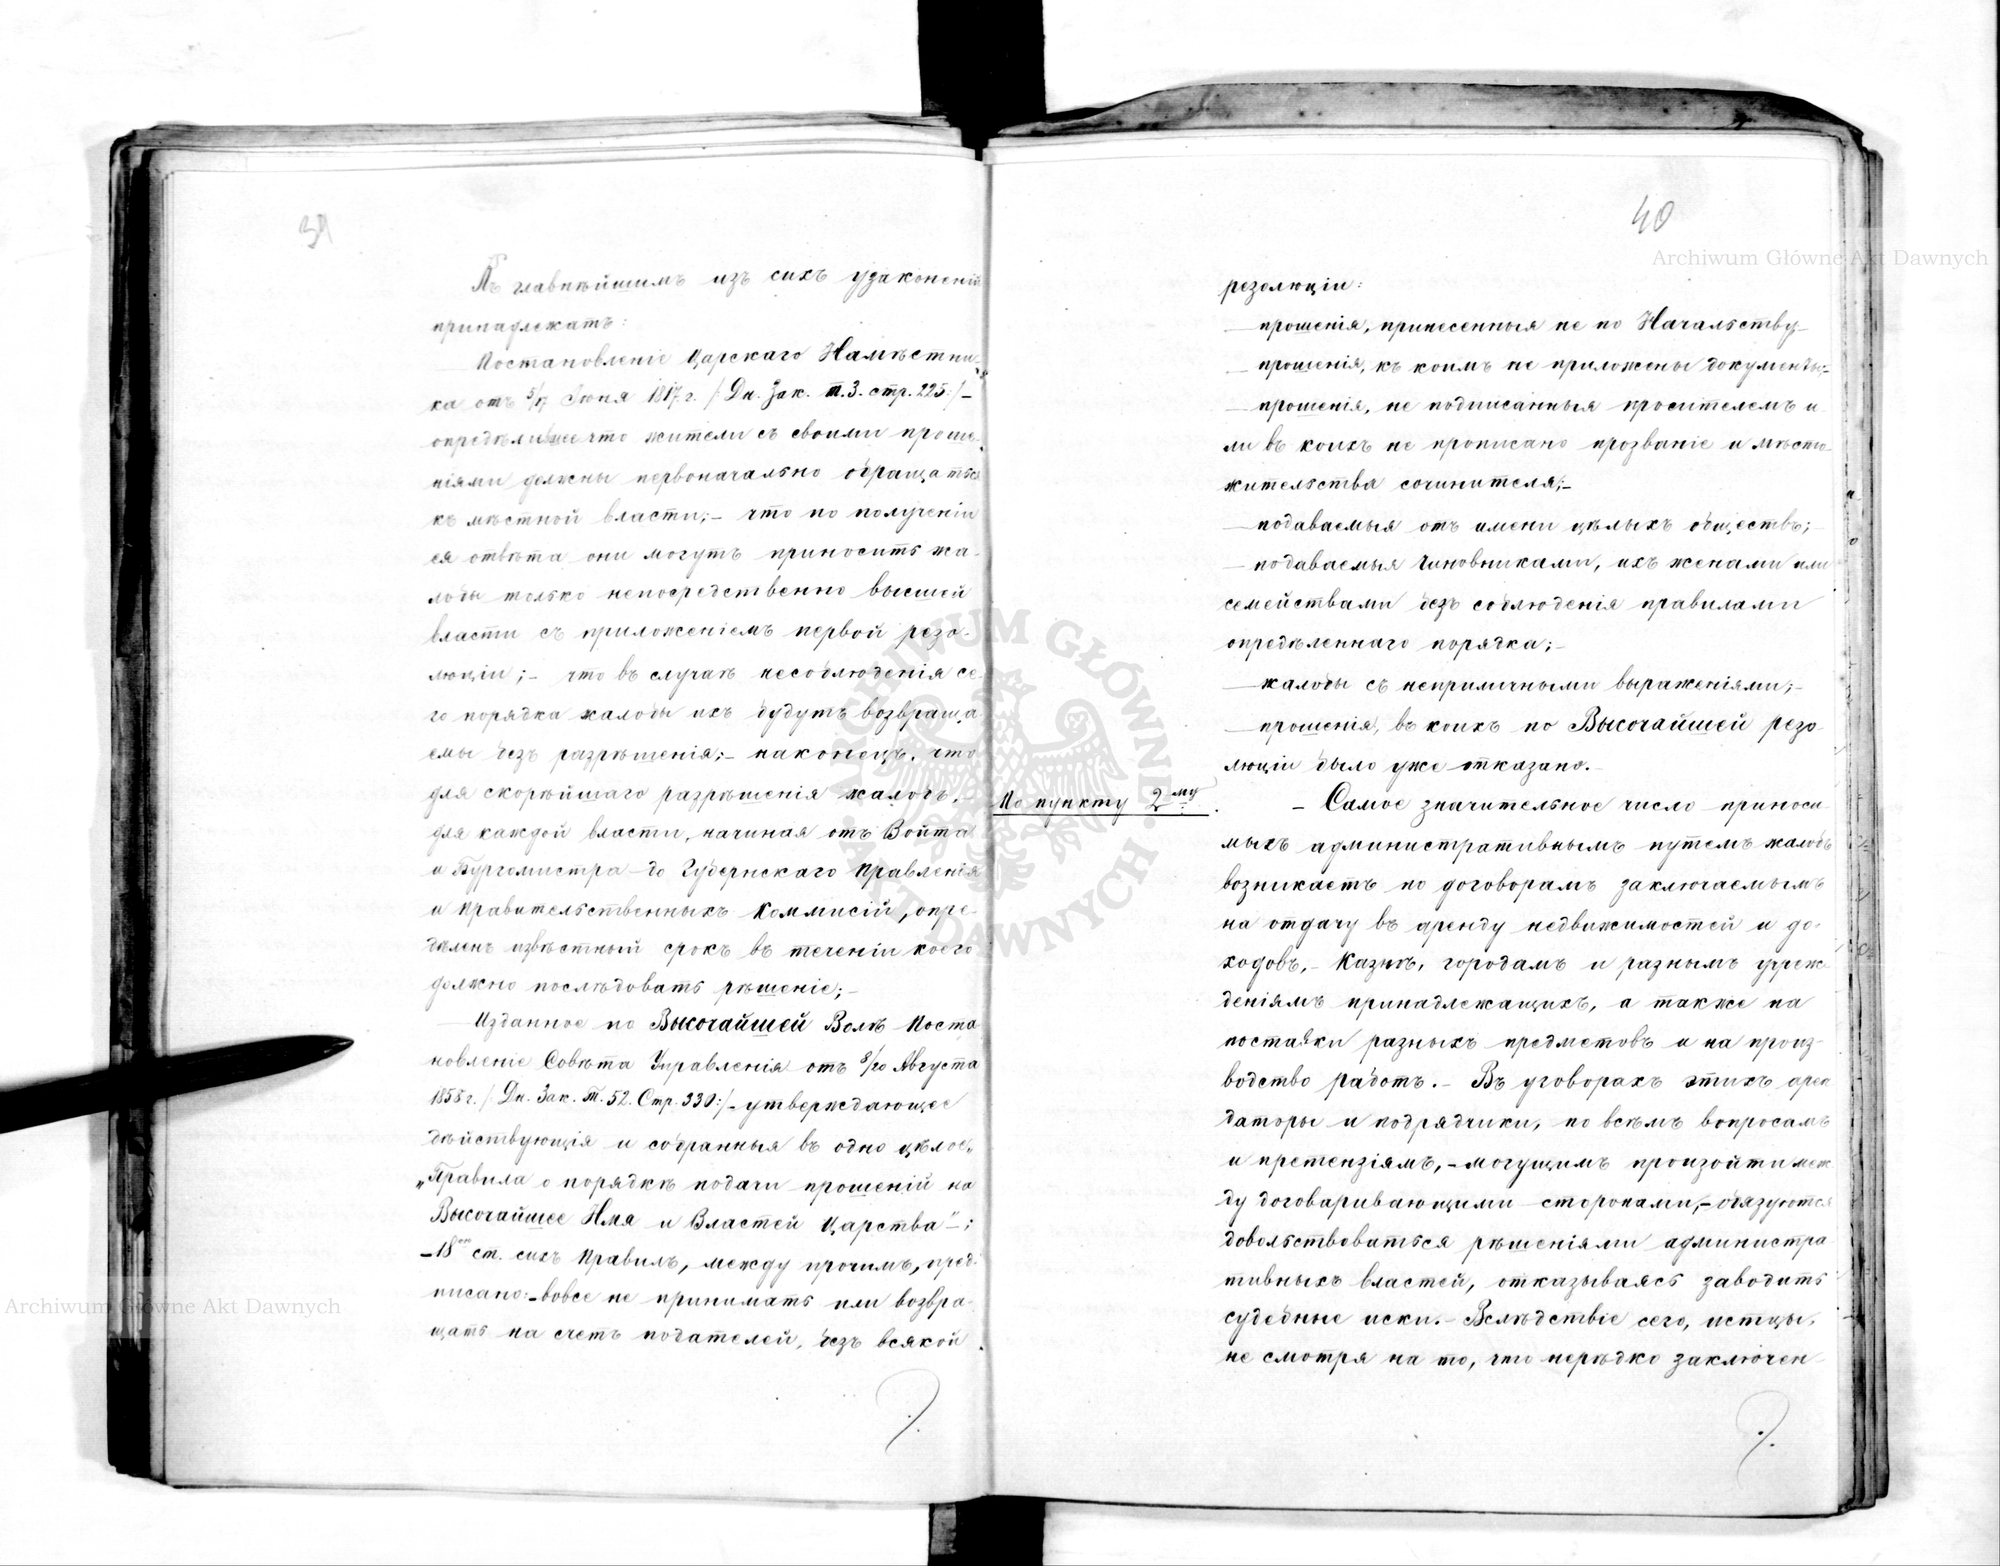 39
Къ главнѣйшимъ изъ сихъ узаконеній
принадлежатъ:
Постановленіе Царскаго Намѣстни-
ка отъ 5/17 Іюня 1817 г. /:Дн. Зак. т. 3. стр. 225:/ –
опредѣлившее что жители съ своими проше-
ніями должны первоначально обращаться
къ мѣстной власти; – что по полученіи
ея отвѣта они могутъ приносить жа-
лобы только непосредственно высшей
власти съ приложеніемъ первой резо-
люціи; – что въ случаѣ несоблюденія се-
го порядка жалобы ихъ будутъ возвраща-
емы безъ разрѣшенія; – наконецъ, что
для скорѣйшаго разрѣшенія жалобъ, –
для каждой власти, начиная отъ Войта
и Бургомистра до Губернскаго Правленія
и Правительственныхъ Коммисій, опре-
дѣленъ извѣстный срокъ въ теченіи коего
должно послѣдовать рѣшеніе; –
Изданное по Высочайшей Волѣ Поста-
новленіе Совѣта Управленія отъ 8/20 Августа
1858 г. /:Дн. Зак. Т. 52. Стр. 330:/ – утверждающее
дѣйствующія и собранныя въ одно цѣлое,
„Правила о порядкѣ подачи прошеній на
Высочайшее Имя и Властей Царства" –;
– 18ою ст. сихъ Правилъ, между прочимъ, пред-
писано: – вовсе не принимать или возвра-
щать на счетъ подателей, безъ всякой
40
резолюціи:
— прошенія, принесенныя не по Начальству –
— прошенія, къ коимъ не приложены документы; –
— прошенія, не подписанныя просителемъ и-
ли въ коихъ не прописано прозваніе и мѣсто-
жительства сочинителя; –
— подаваемыя отъ имени цѣлыхъ обществъ; –
— подаваемыя Чиновниками, ихъ женами или
семействами безъ соблюденія правилами
опредѣленнаго порядка; –
— жалобы съ неприличными выраженіями; –
— прошенія, въ коихъ по Высочайшей резо-
люціи было уже отказано. –
По пункту 2му.
– Самое значительное число приноси-
мыхъ административнымъ путемъ жалобъ
возникаетъ по договорамъ заключаемымъ
на отдачу въ аренду недвижимостей и до-
ходовъ, – Казнѣ, городамъ и разнымъ учреж-
деніямъ принадлежащихъ, а также на
поставки разныхъ предметовъ и на произ-
водство работъ. – Въ уговорахъ этихъ арен-
даторы и подрядчики, по всѣмъ вопросамъ
и претензіямъ, – могущимъ произойти меж-
ду договаривающими сторонами, – обязуются
довольствоваться рѣшеніями администра-
тивныхъ властей, отказываясь заводить
судебные иски. – Вслѣдствіе сего, истцы,
не смотря на то, что нерѣдко заключен-
Archiwum Główne Akt Dawnych
Archiwum Główne Akt Dawnych
ARCHIWUM GŁÓWNE AKT DAWNYCH